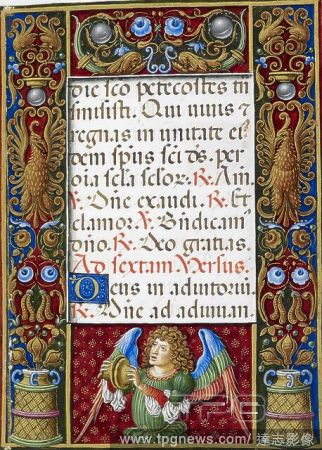 die sco petecostes tri
smisisti. Qui uiuis ⁊
regnas in unitate ei⸗
dem spūs sci ds. per
oīa sclā sclor. R. Am̄.
V. Dn̄e exaudi. R. Et
clamor. V. Bn̄dicam⸗
dn̄o. R. Deo gratias.
Ad sextam Versus.
Deus in adiutoriu⸗
R. Dn̄e ad adiuuan.
TPG
www.tpgnews.com/ 達志影像